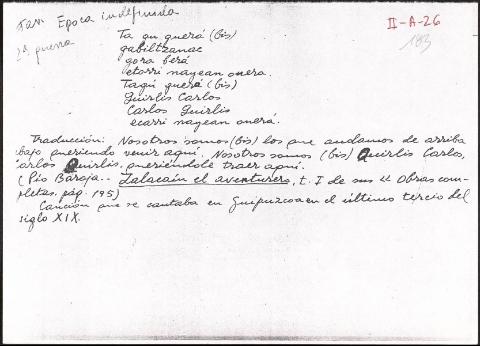 Fan: Epoca indefinida
II-A-26
2ª guerra
183
Ta gu guerá (bis)
gabiltzanac
gora berá
etorri nayean onera.
Tagu guerá (bis)
Guirlis Carlos
Carlos Guirlis
ecarri nayean onerá.
Traducción: Nosotros somos (bis) los que andamos de arriba
bajo queriendo venir aquí, Nosotros somos (bis) Quirlis Carlos,
arlos Quirlis, queriéndole traer aquí.
(Pío Baroja.- Zalacaín el aventurero, t. I de sus "Obras com-
pletas, pág. 195)
Canción que se cantaba en Guipúzcoa en el último tercio del
siglo XIX.